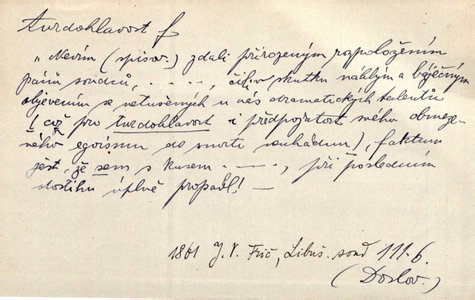 tvrdohlavost f
„Nevím (spisov.) zdali přirozeným rozpoložením
pánů soudců, . – . – . , čili skutku náhlým a báječným
objevením se netušených u nás dramatických talentů
(což pro tvrdohlavost a předpojatost svého obmeze-
ného egoismu do smrti neuhádnu), faktum
jest, že sem s kusem . – . – . , při posledním
dostihu úplně propadl! –
1861 J. V. Frič, Libuš. soud 111.6.
(Doslov.)